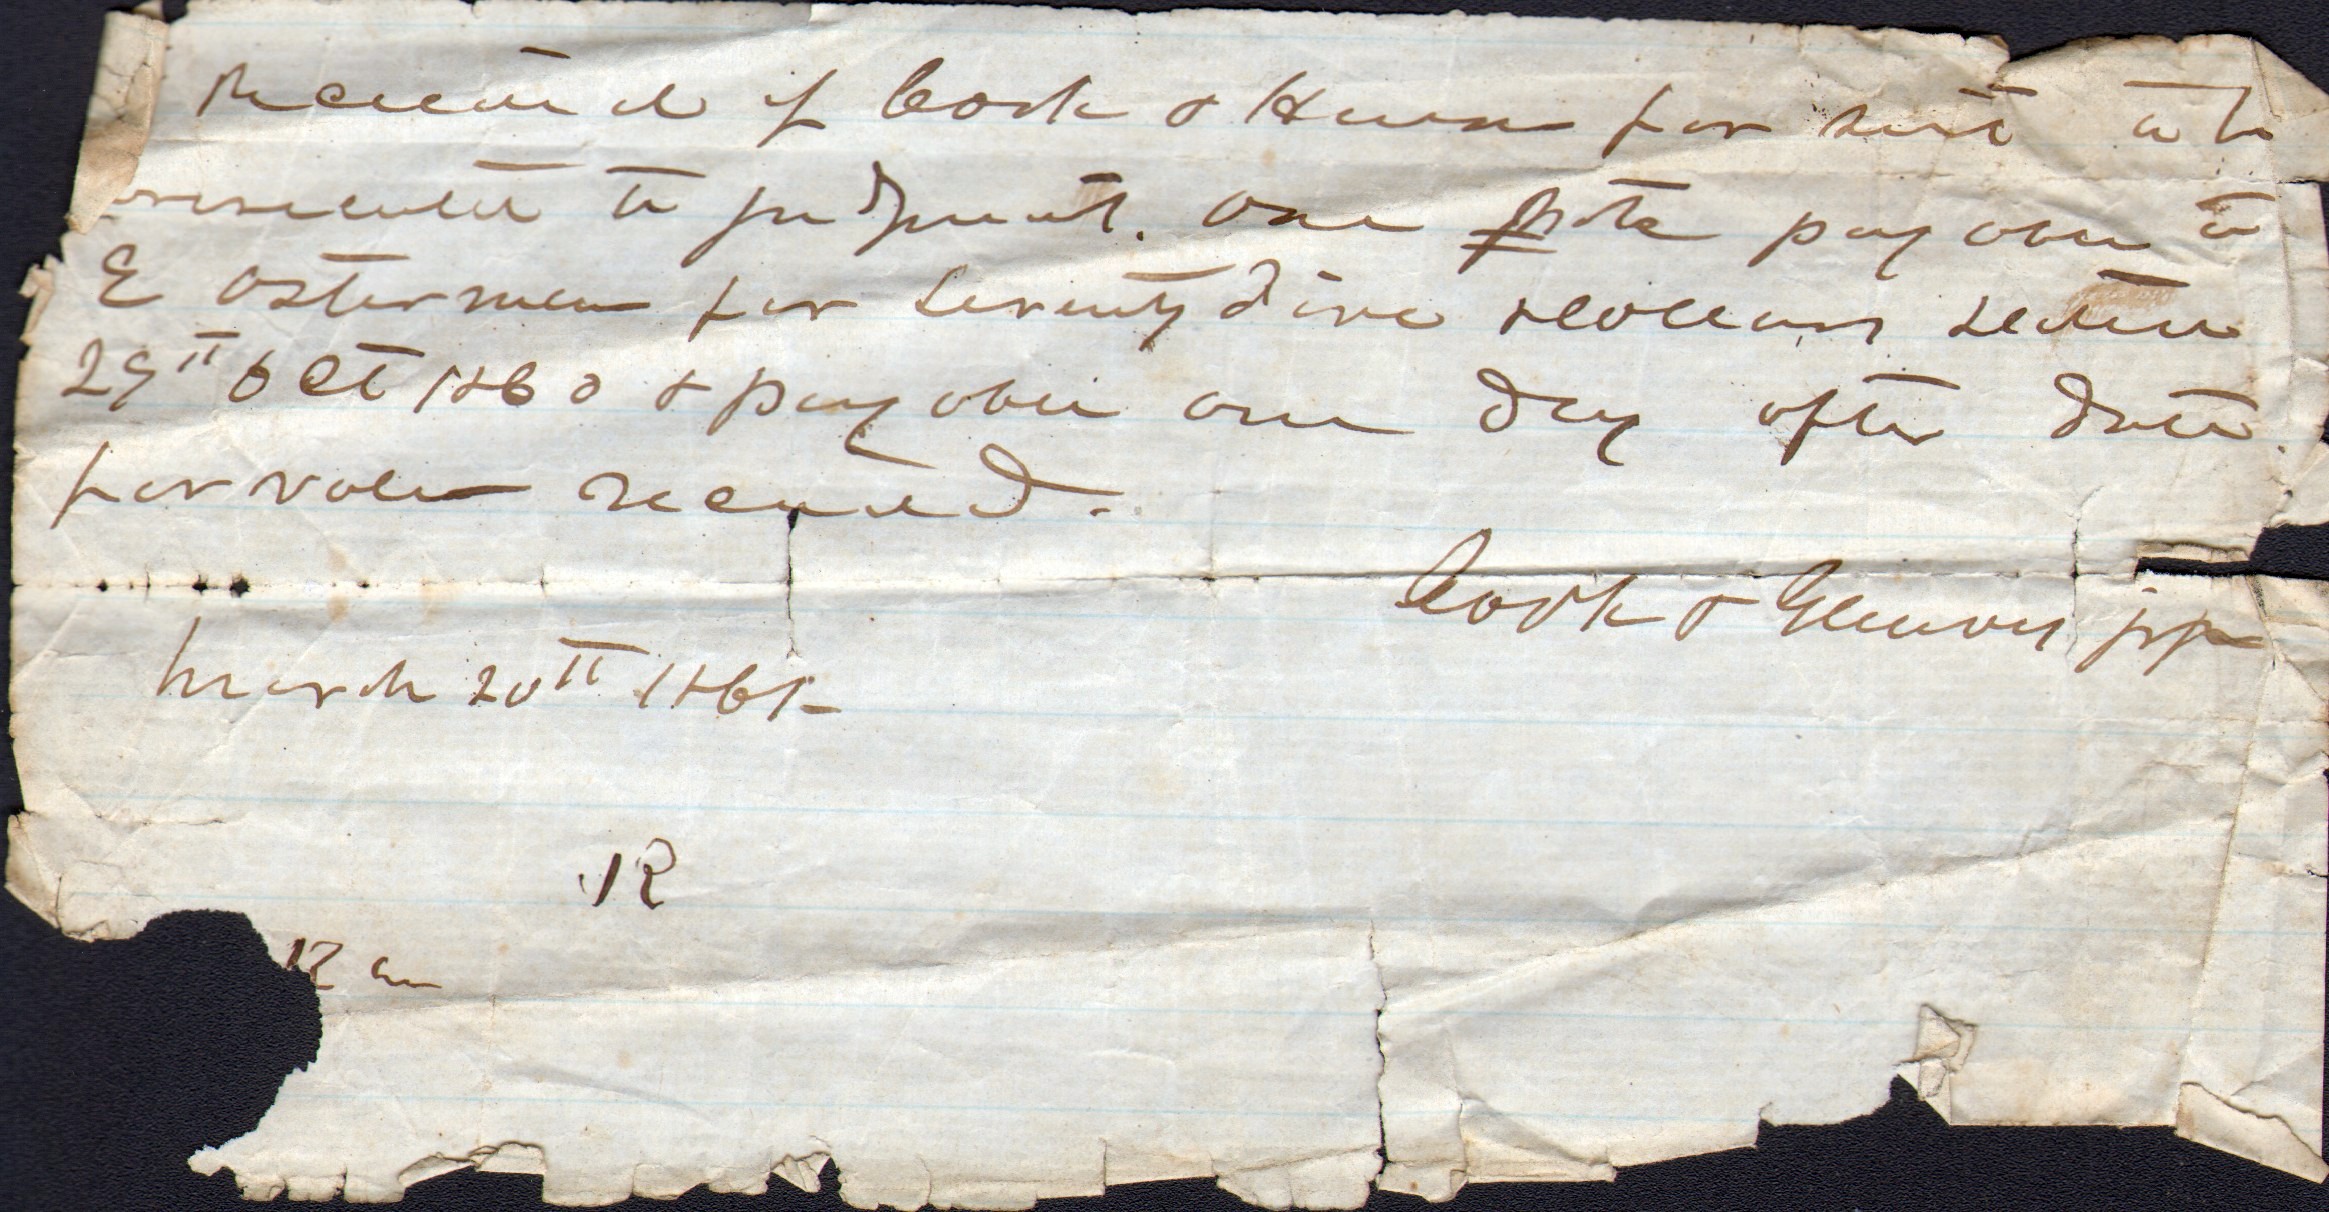 Received of Cook & for suit to be
prosecuted to judgment. One Note payable to
E Osterman for Seventy five dollars dated
29th Oct 1860 & payable one day after date
for value received.
Cook &
March 20th 186